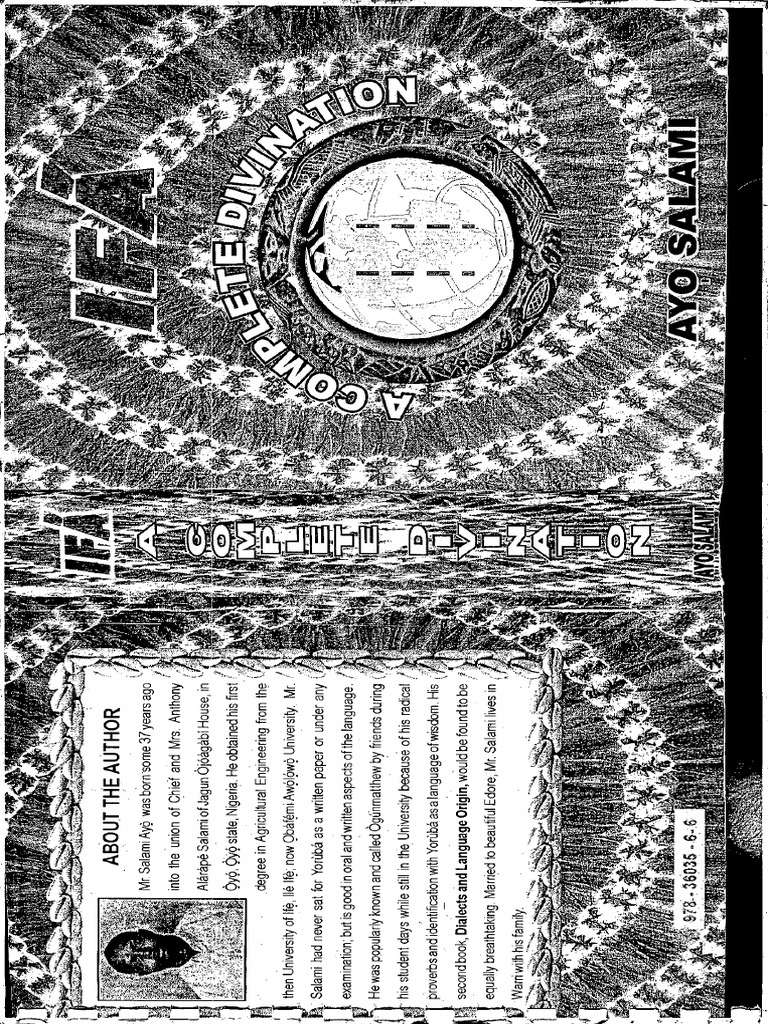 IFÁ
A COMPLETE DIVINATION
AYO SALAMI
IFÁ
A COMPLETE DIVINATION
AYO SALAMI
ABOUT THE AUTHOR
Mr Salami Ayọ̀ was born some 37 years ago
into the union of Chief and Mrs. Anthony
Alárápé Salami of Jagun Òjóàgbàbí House, in
Ọ̀yọ́, Ọ̀yọ́ state, Nigeria. He obtained his first
degree in Agricultural Engineering from the
then University of Ifẹ̀, Ilé Ifẹ̀, now Ọbáfẹ́mi Awólọ́wọ̀ University. Mr.
Salami had never sat for Yorùbá as a written paper or under any
examination; but is good in oral and written aspects of the language.
He was popularly known and called Ògúnmatthew by friends during
his student days while still in the University because of his radical
proverbs and identification with Yorùbá as a language of wisdom. His
second book, Dialects and Language Origin, would be found to be
equally breathtaking. Married to beautiful Edore, Mr. Salami lives in
Warri with his family.
978 - 36035 - 6 - 6